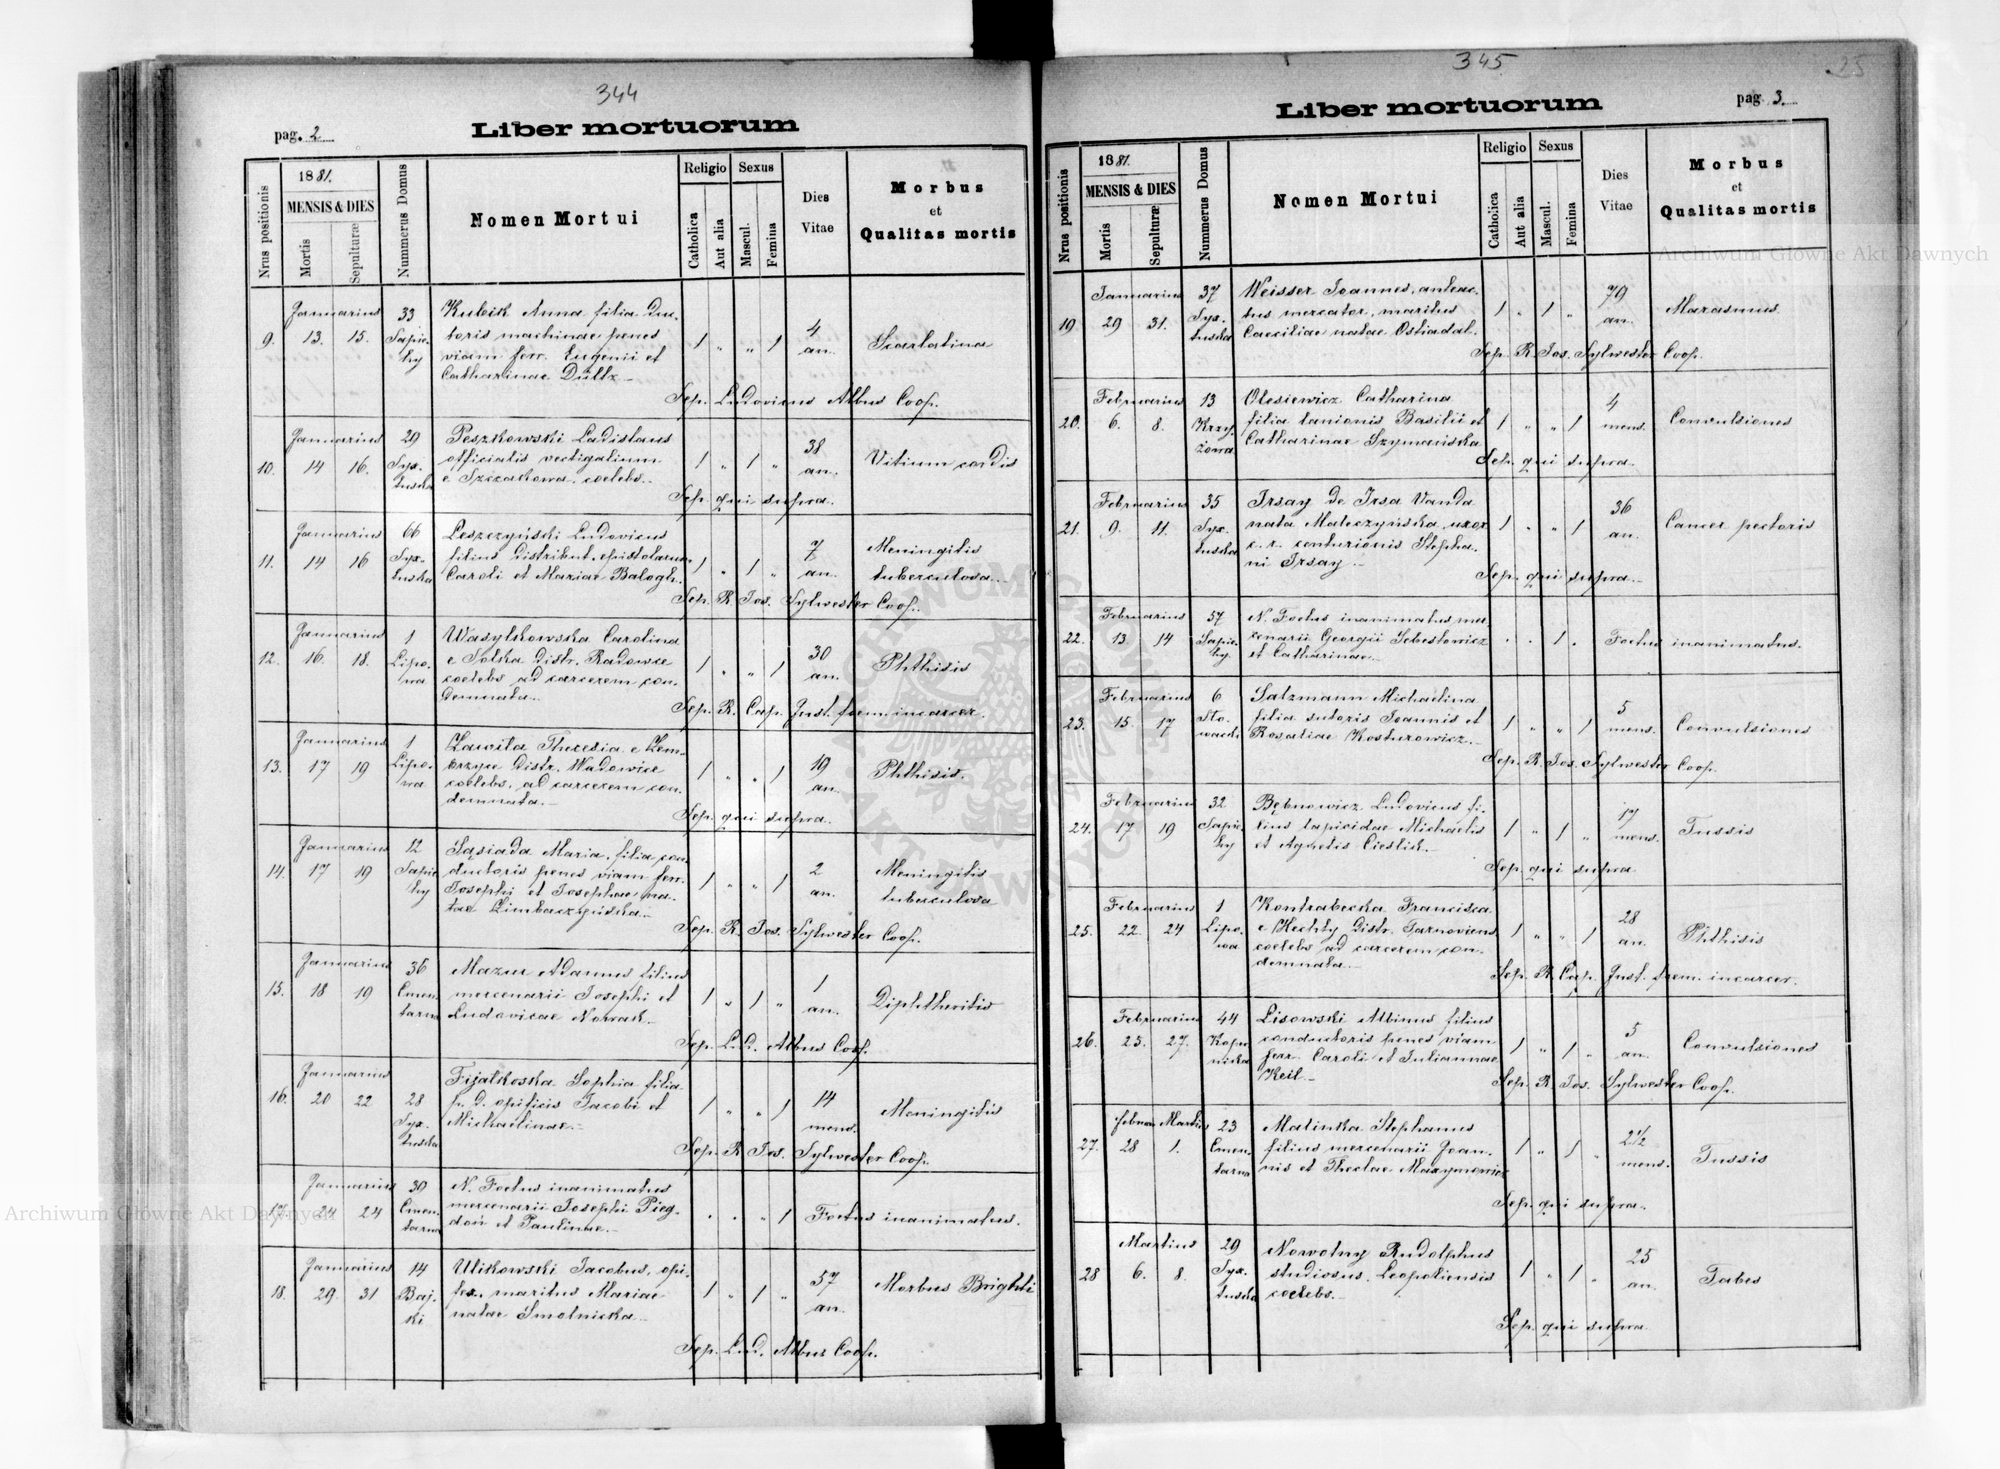 344
pag. 2
Liber mortuorum
Nrus positionis
1881.
MENSIS & DIES
Mortis
Sepulturæ
Nummerus Domus
Nomen Mortui
Religio
Catholica
Aut alia
Sexus
Mascul.
Femina
Dies
Vitae
Morbus
et
Qualitas mortis
Januarius 33 Kubik Anna filia Duc-
9. 13. 15. Sapie- toris machinae penes 1 " " 1 4 Scarlatina
hy viam ferr. Eugenii et an.
Catharinae Dültz
Sep. Ludovicus Albus Coop.
Januarius 29 Peszkowski Ladislaus 38
10. 14 16. Syx- officialis vectigalium 1 " 1 " an. Vitium cordis
tuska e Szczakowa, coelebs.
Sep. qui supra.
Januarius 66 Leszczyński Ludovicus 7 Meningitis
11. 14 16 Syx- filius distribut. epistolarum 1 " 1 " an. tuberculosa
tuska Caroli et Mariae Balogh.
Sep. R. Jos. Sylwester Coop.
Januarius 1 Wasylkowska Carolina 30
12. 16. 18. Lipo- e Solka distr. Radowce 1 " " 1 an. Phthisis
wa coelebs ad carcerem con-
demnata
Sep. R. Cap. Inst. fem. incarcer.
Januarius 1 Zawiła Theresia e Zem-
13. 17 19 Lipo- brzyce distr. Wadowice 1 " " 1 19 Phthisis.
wa coelebs, ad carcerem con- an.
demnata.
Sep. qui supra.
Januarius 12 Sąsiada Maria, filia con-
14. 17 19 Sapie- ductoris penes viam ferr. 1 " " 1 2 Meningitis
hy Josephi et Josephae na- an. tuberculosa
tae Zimbaczyńska
Sep. R. Jos. Sylwester Coop.
Januarius 36 Mazur Adamus filius 1
15. 18 19 Cmen- mercenarii Josephi et 1 " 1 " an. Diphtheritis
tarna Ludovicae Nowak.
Sep. Lud. Albus Coop.
Januarius Fijałkoska Sophia filia
16. 20 22 28 p. d. opificis Jacobi et 1 " " 1 14 Meningitis
Syx- Michaelinae. mens.
tuska
Sep. R. Jos. Sylwester Coop.
Januarius 30 N. Foetus inanimatus
17. 24 24 Cmen- mercenarii Josephi Pieg- . . " 1 Foetus inanimatus.
tarna doń et Paulinae
Januarius 14 Ulikowski Jacobus, opi-
18. 29. 31 Baj- fex, maritus Mariae 1 " 1 " 57 Morbus Brightii
ki natae Smolnicka an.
Sep. Lud. Albus Coop.
345
25
pag. 3.
Liber mortuorum
Nrus positionis
1881.
MENSIS & DIES
Mortis
Sepulturæ
Nummerus Domus
Nomen Mortui
Religio
Catholica
Aut alia
Sexus
Mascul.
Femina
Dies
Vitae
Morbus
et
Qualitas mortis
Januarius 37 Weisser Joannes, anteac- 79
19. 29 31. Syx- tus mercator, maritus 1 " 1 " an. Marasmus
tuska Caeciliae natae Ostiadal.
Sep. R. Jos. Sylwester Coop.
Februarius 13 Olesiewicz Catharina 4
20. 6. 8. Krzy- filia lanionis Basilii et 1 " " 1 mens. Convulsiones
żowa Catharinae Szymańska
Sep. qui supra.
Februarius 35 Irsay de Irsa Vanda 36
21. 9. 11. Syx- nata Maleczyńska, uxor 1 " " 1 an. Cancer pectoris
tuska c. r. centurionis Stepha-
ni Irsay
Sep. qui supra.
Februarius 57 N. Foetus inanimatus mer-
22. 13. 14 Sapie- cenarii Georgii Sebestowicz . . 1 . Foetus inanimatus.
hy et Catharinae
Februarius 6 Salzmann Michaelina 5
23. 15. 17 Sło- filia sutoris Joannis et 1 " " 1 mens. Convulsiones
wacki Rosaliae Kosturowicz.
Sep. R. Jos. Sylwester Coop.
Februarius 32 Bębnowicz Ludovicus fi- 17
24. 17 19 Sapie- lius lapicidae Michaelis 1 " 1 " mens. Tussis
hy et Agnetis Cieslik.
Sep. qui supra
Februarius 1 Kontrabecka Francisca 28
25. 22. 24 Lipo- e Hechty distr. Tarnoviens. 1 " " 1 an. Phthisis
wa coelebs ad carcerem con-
demnata
Sep. R. Cap. Inst. fem. incarcer.
Februarius 44 Lisowski Albinus filius 5
26. 25. 27. Koper- conductoris penes viam 1 " 1 " an. Convulsiones
nicka ferr. Caroli et Juliannae
Keil.
Sep. R. Jos. Sylwester Coop.
Februar Martius 23 Malinka Stephanus 2 1/2
27. 28 1. Cmen- filius mercenarii Joan- 1 " 1 " mens. Tussis
tarna nis et Theclae Maxymowicz
Sep. qui supra.
Martius 29 Nowotny Rudolphus 25
28 6. 8. Syx- studiosus, Leopoliensis 1 " 1 " an. Tabes
tuska coelebs.
Sep. qui supra
Archiwum Główne Akt Dawnych
Archiwum Główne Akt Dawnych
ARCHIWUM GŁÓWNE AKT DAWNYCH